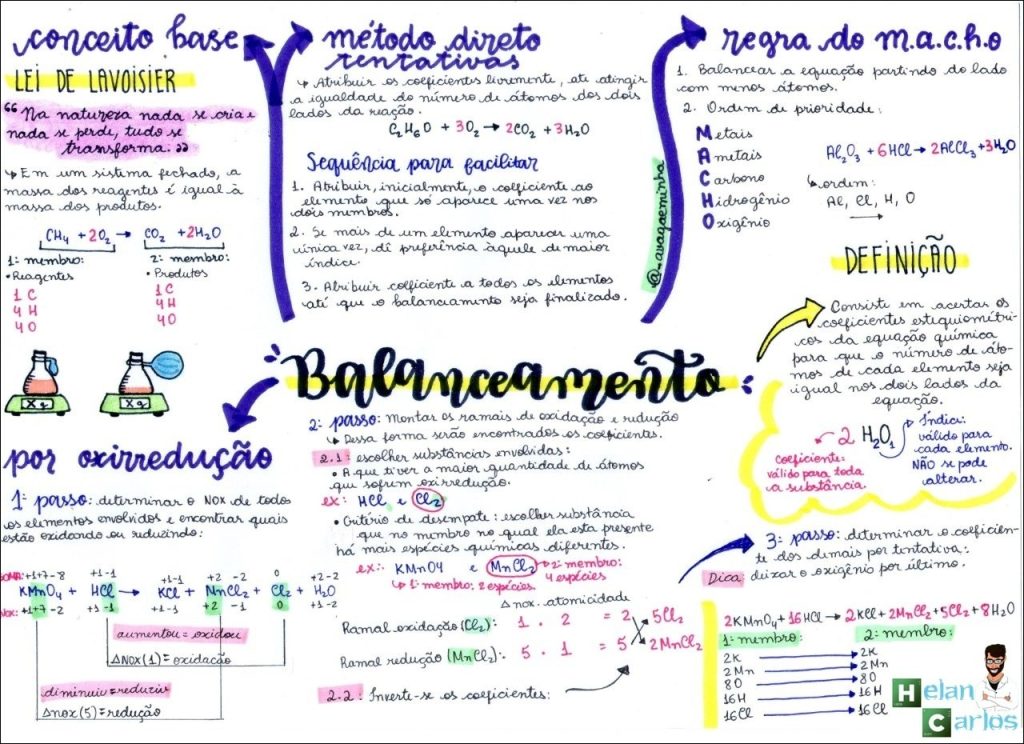 conceito base
LEI DE LAVOISIER
“Na natureza nada se cria e
nada se perde, tudo se
transforma.”
↳ Em um sistema fechado, a
massa dos reagentes é igual à
massa dos produtos.
CH₄ + 2O₂ → CO₂ + 2H₂O
1º membro: 2º membro:
• Reagentes • Produtos
1 C 1 C
4 H 4 H
4 O 4 O
X g X g
método direto
tentativas
↳ Atribuir os coeficientes livremente, até atingir
a igualdade do número de átomos dos dois
lados da reação.
C₂H₆O + 3O₂ → 2CO₂ + 3H₂O
Sequência para facilitar
1. Atribuir, inicialmente, o coeficiente ao
elemento que só aparece uma vez nos
dois membros.
2. Se mais de um elemento aparecer uma
única vez, dê preferência àquele de maior
índice.
3. Atribuir coeficiente a todos os elementos
até que o balanceamento seja finalizado.
@-avagaeminha
regra do m.a.c.h.o
1. Balancear a equação partindo do lado
com menos átomos.
2. Ordem de prioridade:
Metais
Ametais
Carbono
Hidrogênio
Oxigênio
Al₂O₃ + 6HCl → 2AlCl₃ + 3H₂O
↳ ordem:
Al, Cl, H, O
DEFINIÇÃO
Consiste em acertar os
coeficientes estequiométri-
cos da equação química
para que o número de áto-
mos de cada elemento seja
igual nos dois lados da
equação.
2 H₂O₁
Coeficiente:
válido para toda
a substância.
Índice:
válido para
cada elemento.
NÃO se pode
alterar.
Balanceamento
por oxirredução
1º passo: determinar o Nox de todos
os elementos envolvidos e encontrar quais
estão oxidando ou reduzindo:
SOMA: +1+7-8 +1-1 +1-1 +2 -2 0 +2-2
KMnO₄ + HCl → KCl + MnCl₂ + Cl₂ + H₂O
NOX: +1+7-2 +1-1 +1-1 +2 -1 0 +1-2
aumentou = oxidou
ΔNOX(1) = oxidação
diminuiu = reduziu
Δnox(5) = redução
2º passo: montar os ramais de oxidação e redução
↳ Dessa forma serão encontrados os coeficientes.
2.1: escolher substâncias envolvidas:
• A que tiver a maior quantidade de átomos
que sofrem oxirredução.
ex: HCl e Cl₂
• Critério de desempate: escolher substância
que no membro no qual ela está presente
há mais espécies químicas diferentes.
ex.: KMnO4 e MnCl₂ → 2º membro:
4 espécies
↳ 1º membro: 2 espécies
Δnox. atomicidade
Ramal oxidação (Cl₂): 1 . 2 = 2 5Cl₂
Ramal redução (MnCl₂): 5 . 1 = 5 2MnCl₂
2.2: Inverte-se os coeficientes:
3º passo: determinar o coeficien-
te dos demais por tentativa:
Dica: deixar o oxigênio por último.
2KMnO₄ + 16HCl → 2KCl + 2MnCl₂ + 5Cl₂ + 8H₂O
1º membro: 2º membro:
2K 2K
2Mn 2Mn
8O 8O
16H 16H
16Cl 16Cl
Helan
Carlos